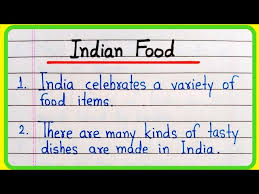 Indian Food
1. India celebrates a variety of
food items.
2. There are many kinds of tasty
dishes are made in India.